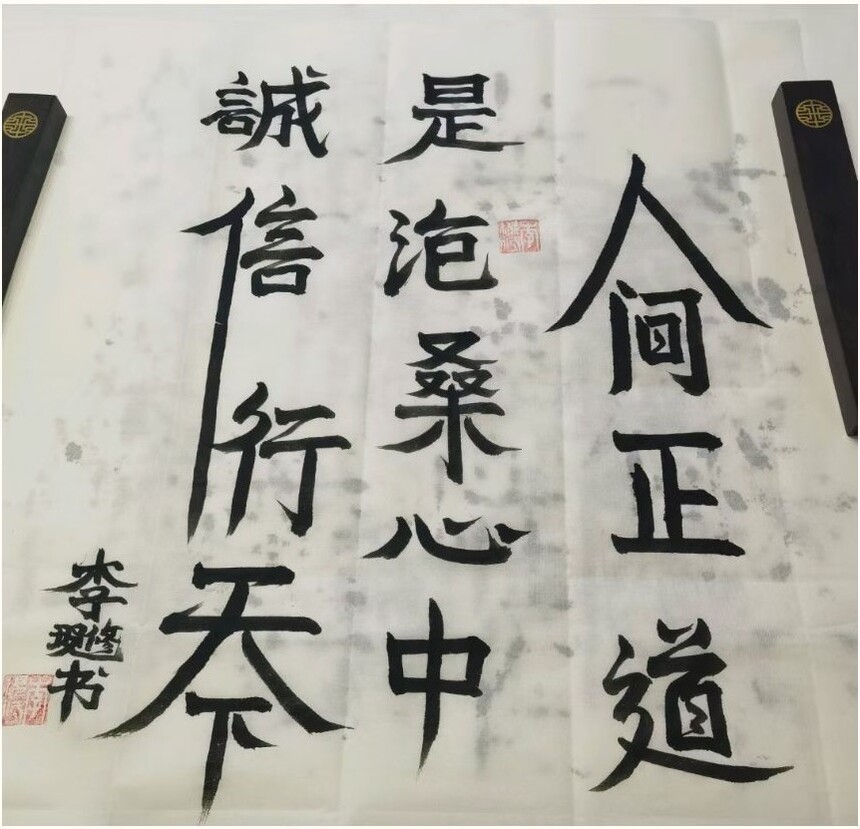 人间正道
是沧桑心中
誠信行天下
李修书